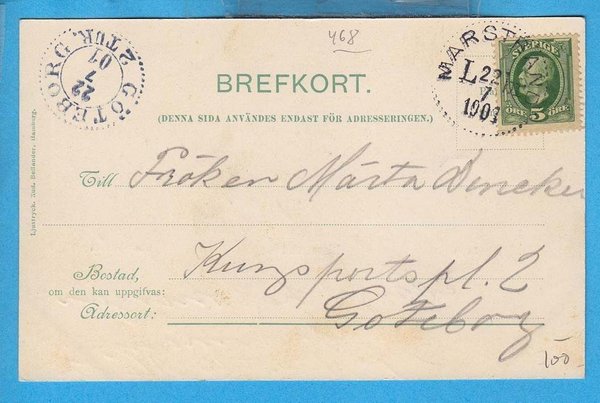 468
GÖTEBORG 2 TUR
22
7
01
MARSTRAND
L 22
7
1901
SVERIGE
ÖRE 5 ÖRE
BREFKORT.
(DENNA SIDA ANVÄNDES ENDAST FÖR ADRESSERINGEN.)
Till Fröken Märta Dencker
Kungsportspl. 2
Bostad,
om den kan uppgifvas:
Adressort: Göteborg
100
Ljustryck. Knö. Bellander, Hamburg.